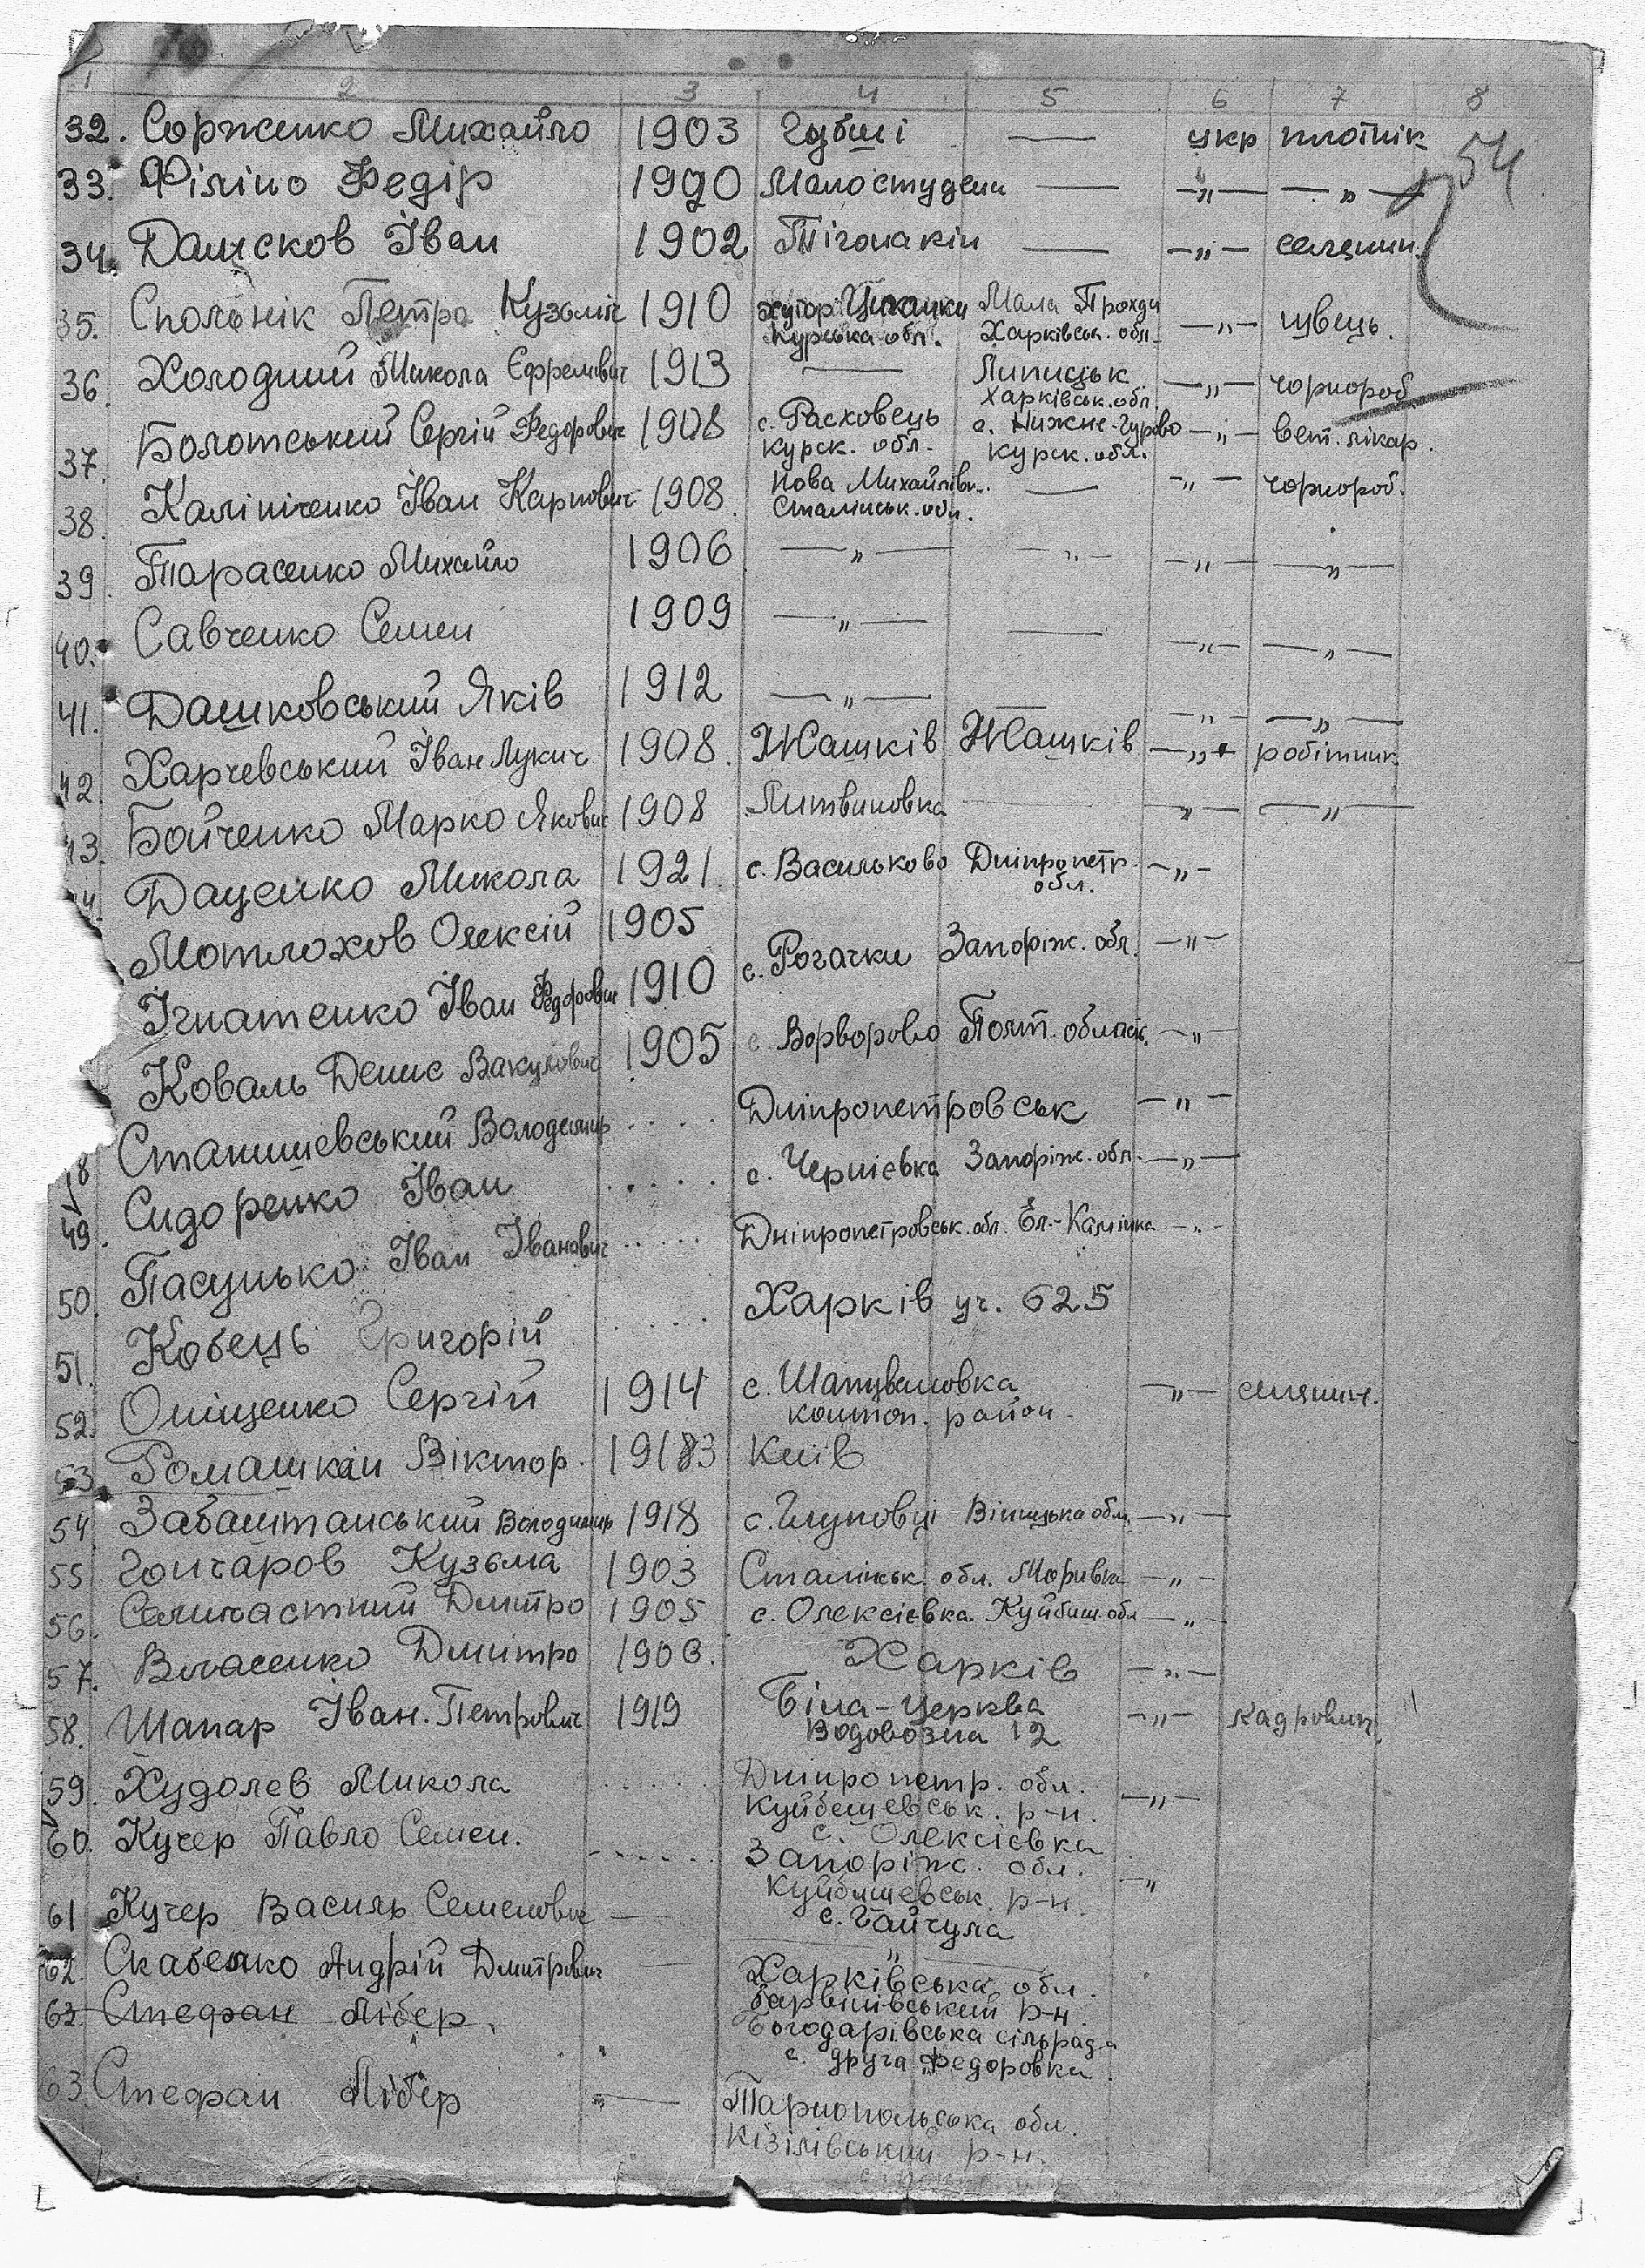 1 2 3 4 5 6 7 8
54
32. Сорженко Михайло 1903 Губші — укр плотнік
33. Філіпо Федір 1990 Малостудени — —„— —„—
34. Данчсков Іван 1902 Тігонакін — —„— селянин.
35. Спольнік Петро Кузьміч 1910 хутор Цикалки Мала Проходи —„— швець.
Курська обл. Харківськ. обл.
36. Холодний Микола Єфремович 1913 — Липицьк —„— чорнороб
Харківськ. обл.
37. Болотський Сергій Федорович 1908 с. Расховець с. Нижнє-Гурово —„— вет. лікар.
курск. обл. курск. обл.
38. Калініченко Іван Карпович 1908. Нова Михайлівк. — —„— чорнороб.
Сталінськ. обл.
39. Тарасенко Михайло 1906 —„— —„— —„— —„—
40. Савченко Семен 1909 —„— — —„— —„—
41. Дашковський Яків 1912 —„— — —„— —„—
42. Харчевський Іван Лукич 1908. Жашків Жашків —„— робітник
43. Бойченко Марко Якович 1908 Литвиновка — —„— —„—
Даценко Микола 1921. с. Васильково Дніпропетр. —„—
обл.
Мотлохов Олексій 1905
с. Рогачки Запоріж. обл. —„—
Ігнатенко Іван Федорович 1910
с. Ворворово Полт. област. —„—
Коваль Денис Вакулович 1905
Дніпропетровськ —„—
8 Станишевський Володимир . . . .
с. Чернієвка Запоріж. обл. —„—
49. Сидоренко Іван . . . . .
Дніпропетровськ. обл. Єл.-Камінка —„—
50. Пасунько Іван Іванович . . . . .
Харків уч. 625
51. Кобець Григорій . . . . .
52. Оніщенко Сергій 1914 с. Шапувеловка —„— селянин.
коштоп. район.
53. Ромашкан Віктор. 19183 Київ
54 Забаштанський Володимир 1918 с. Глуховці Вінницька обл. —„—
55 Гончаров Кузьма 1903 Сталінськ. обл. Моривка —„—
56. Селичастний Дмитро 1905 с. Олексієвка. Куйбиш. обл —„—
57. Власенко Дмитро 1906. Харків —„—
58. Шапар Іван. Петрович 1919 Біла-Церква —„— кадрович.
Водовозна 12
59. Худолев Микола . . . . . Дніпропетр. обл. —„—
Куйбешевськ. р-н.
с. Олексієвка
60. Кучер Павло Семен. . . . . . . Запоріж. обл. —„
Куйбишевськ. р-н.
с. Гайчула
61 Кучер Василь Семенович — —„—
62 Скабенко Андрій Дмитрович — Харківська обл.
Барвінівський р-н.
Богодарівська сільрада
с. друга Федоровка.
62. Стефан Лібер.
63. Стефан Лібер „— Тарнопольська обл.
Кізілівський р-н.